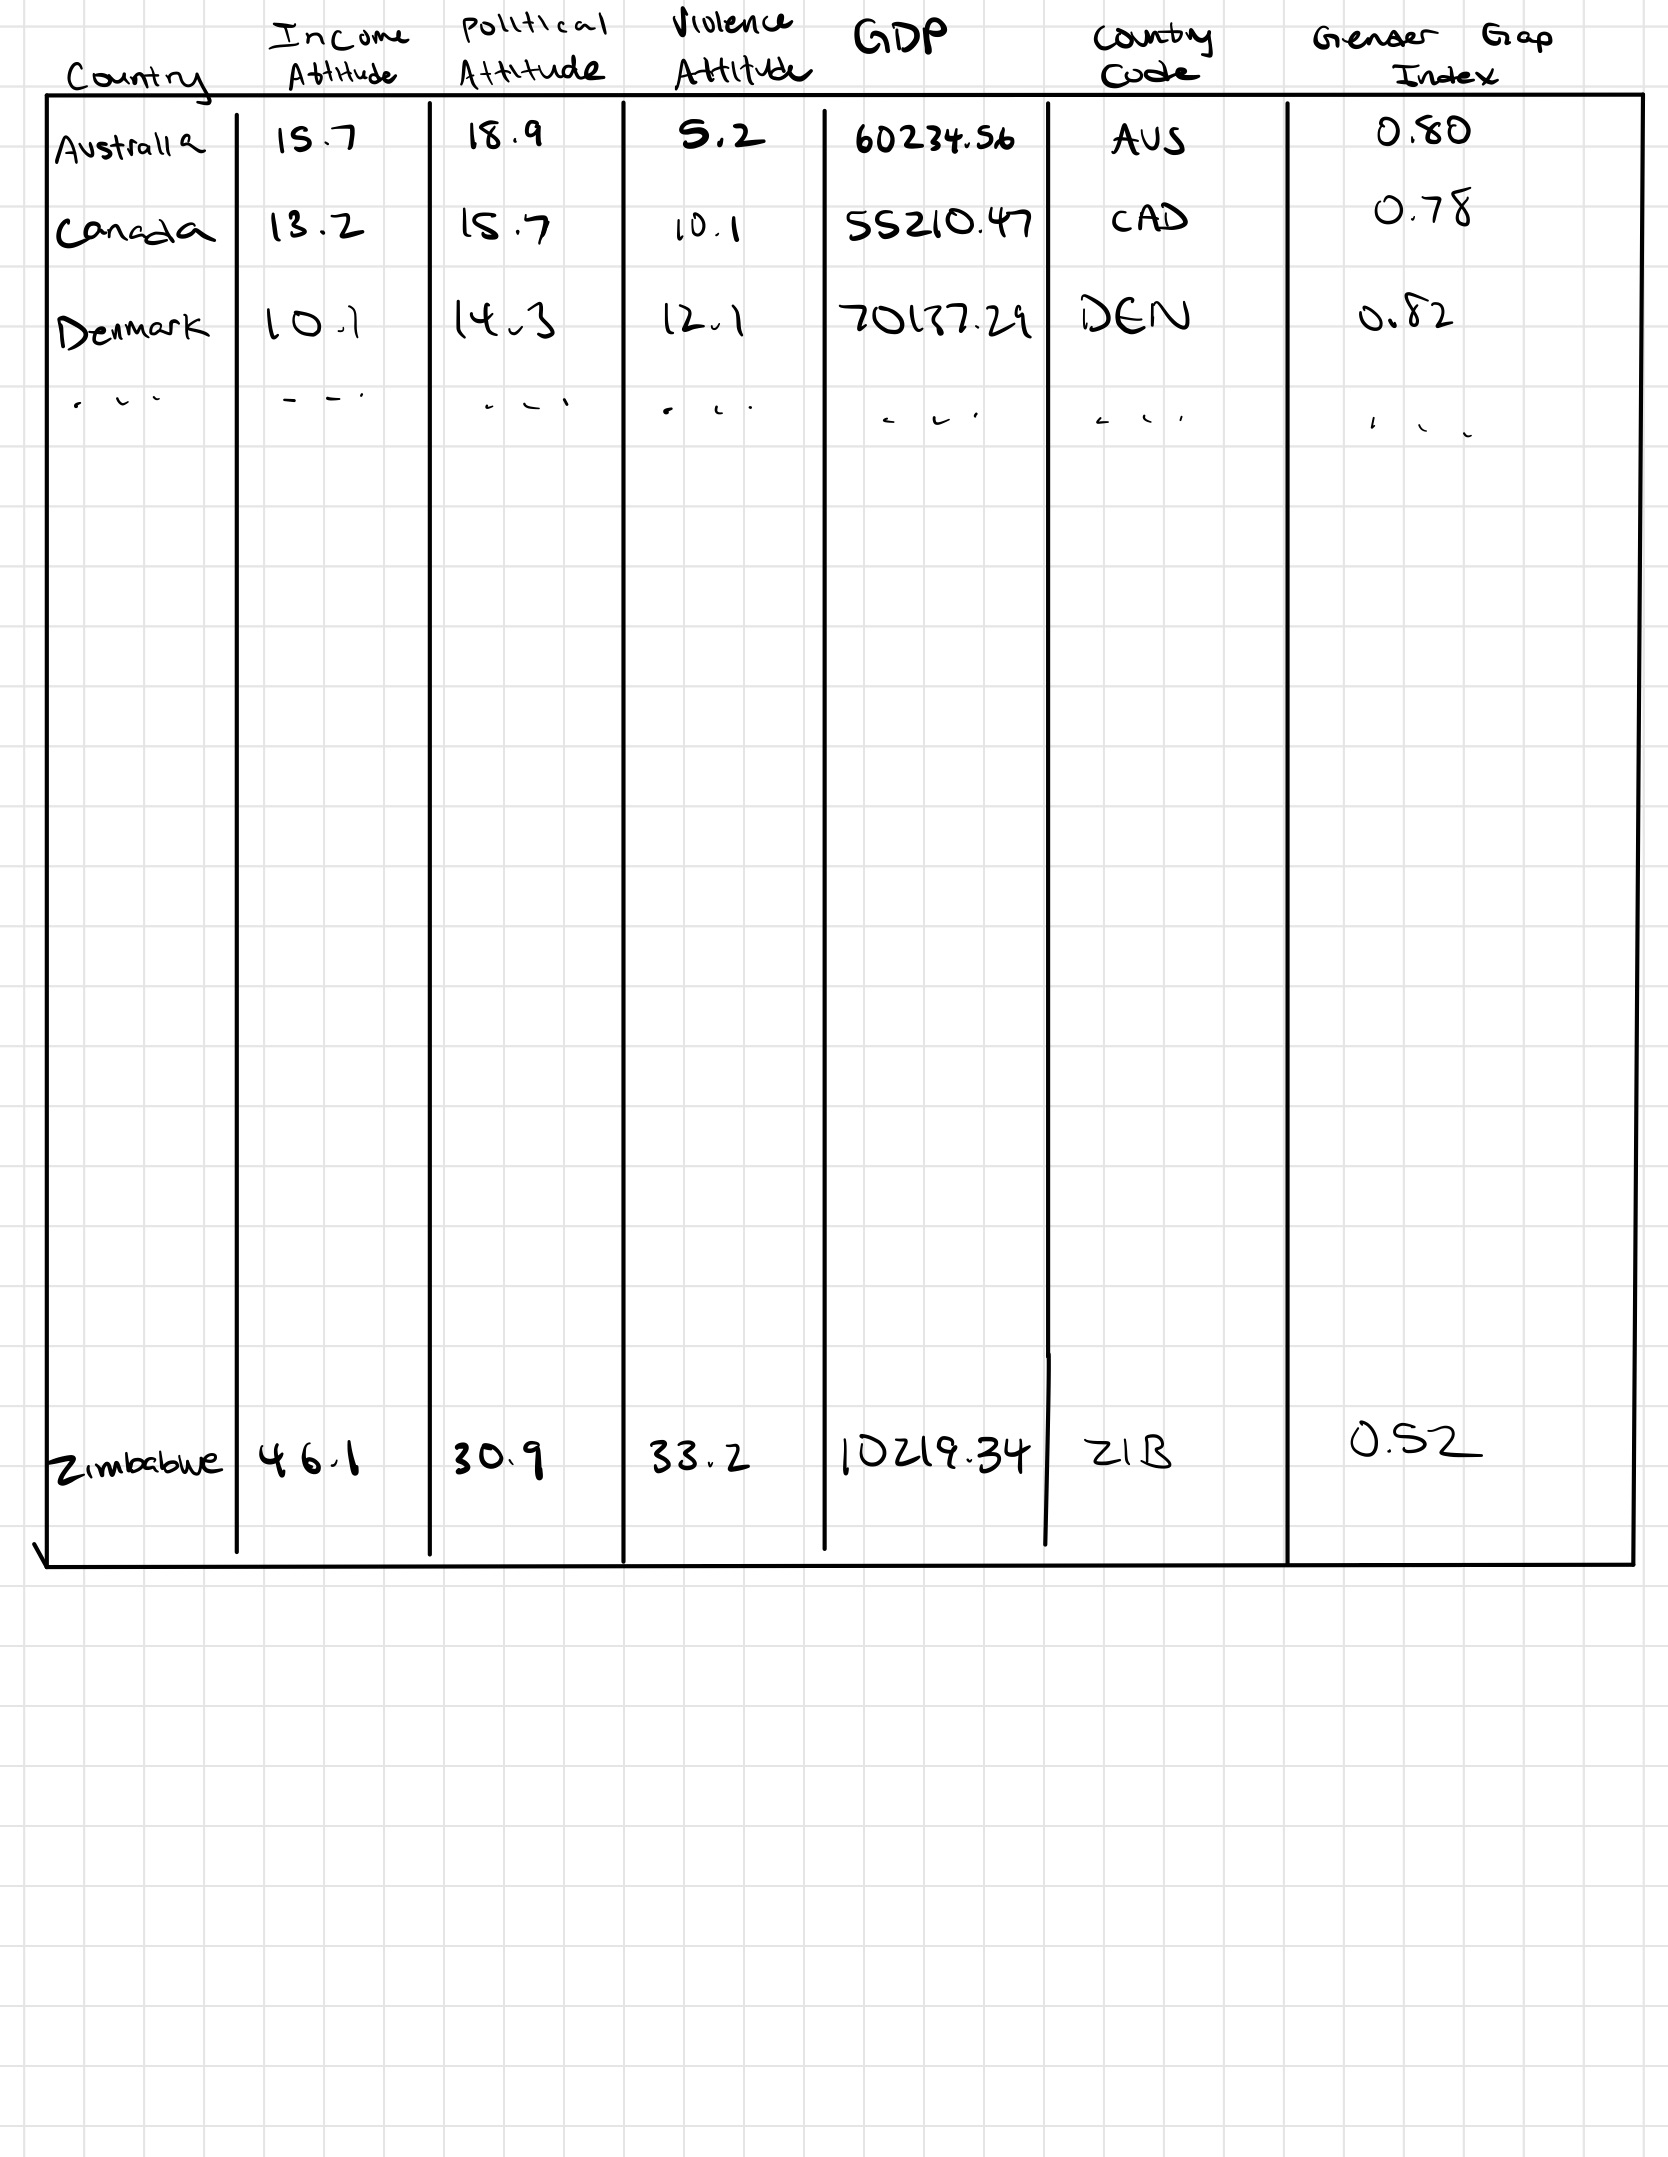 Country Income Attitude Political Attitude Violence Attitude GDP Country Code Gender Gap Index
Australia 15.7 18.9 5.2 60234.56 AUS 0.80
Canada 13.2 15.7 10.1 55210.47 CAD 0.78
Denmark 10.1 14.3 12.1 70137.29 DEN 0.82
... ... ... ... ... ... ...
Zimbabwe 46.1 30.9 33.2 10219.34 ZIB 0.52